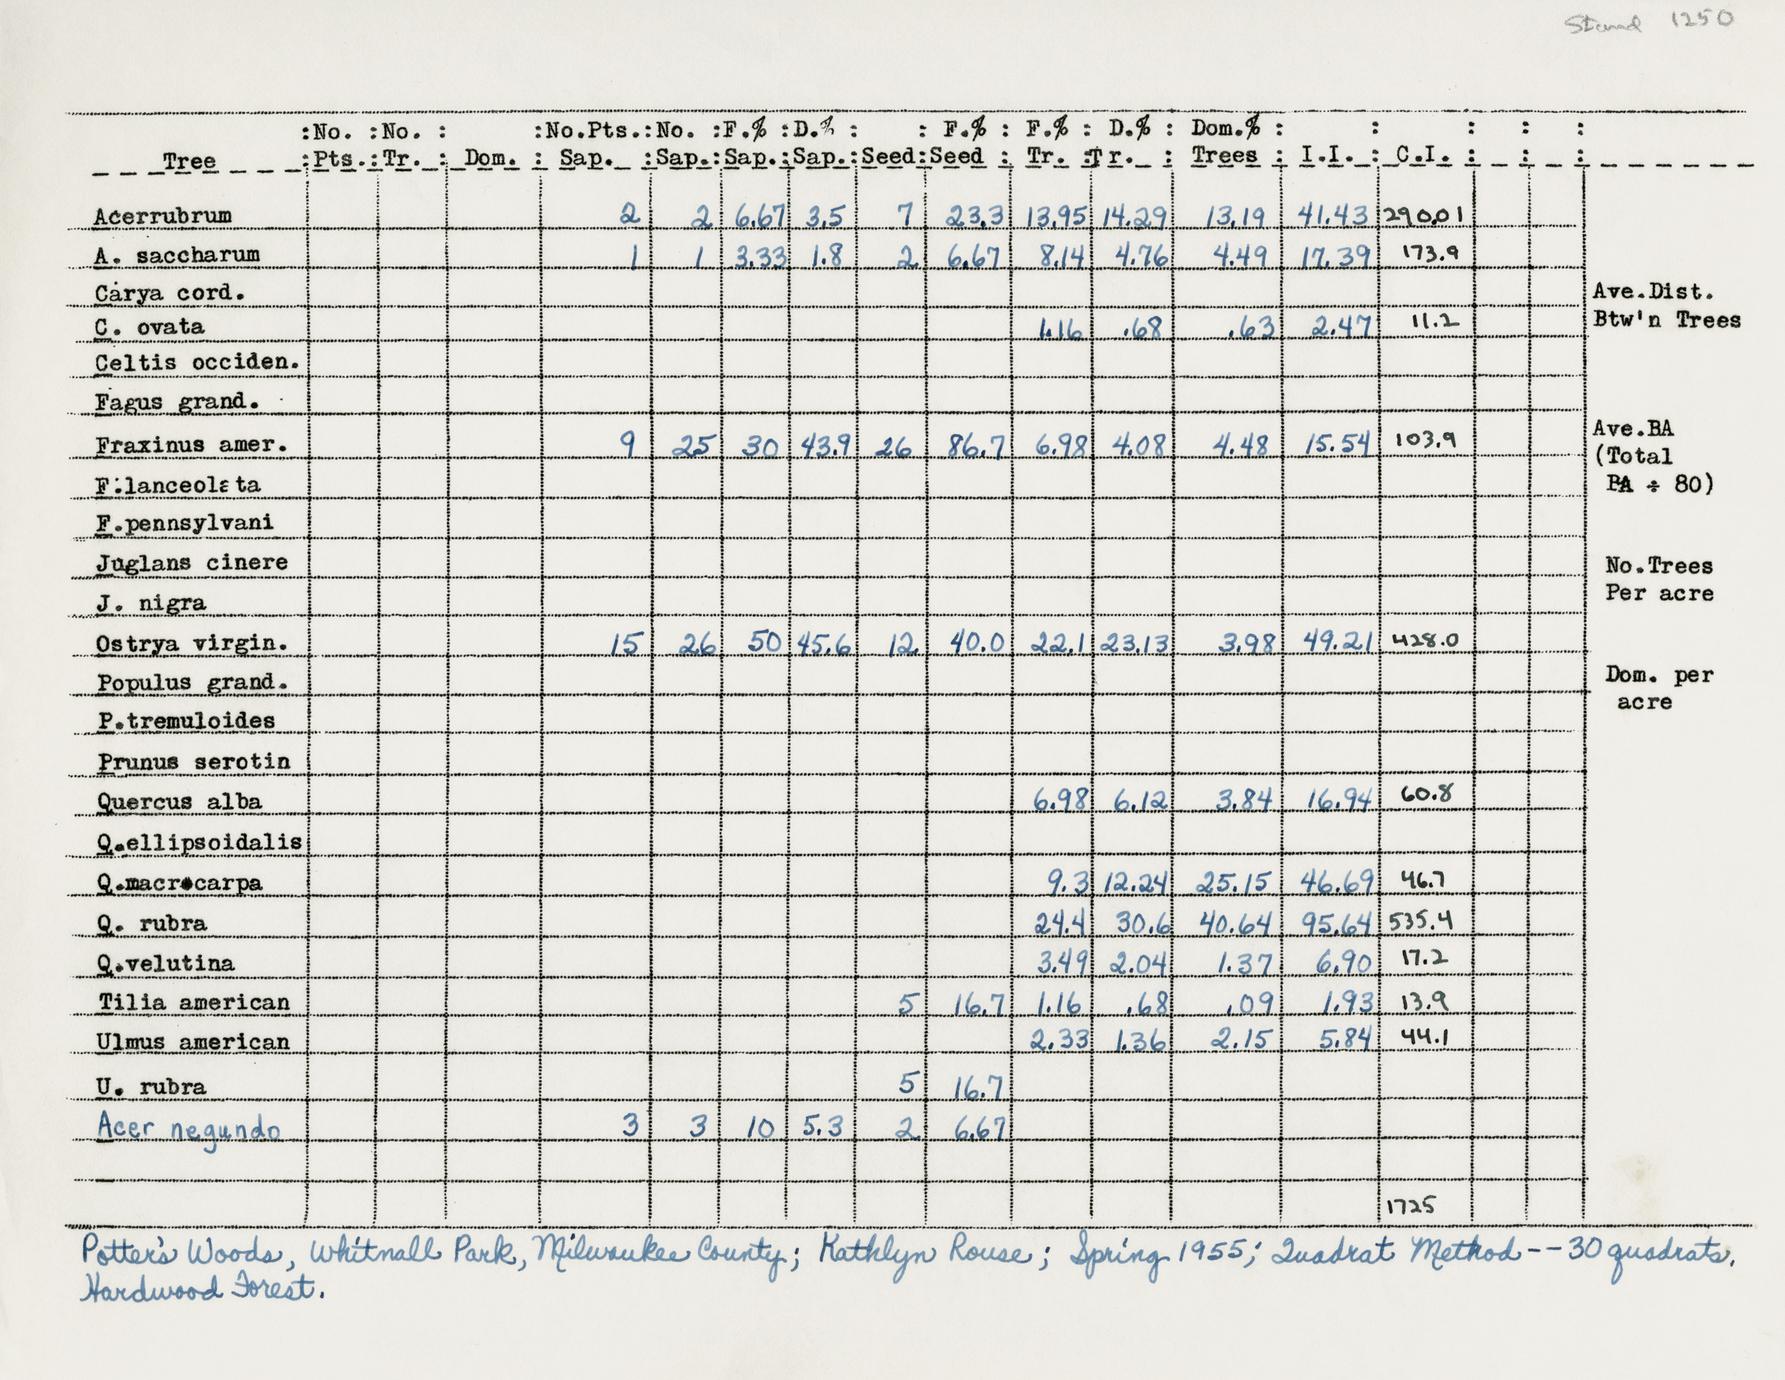 Stand 1250
:No. :No. : :No.Pts.:No. :F.% :D.% : : F.% : F.% : D.% : Dom.% : : : : :
Tree :Pts.:Tr. : Dom. : Sap. :Sap.:Sap.:Sap.:Seed:Seed : Tr. :Tr. : Trees : I.I. : C.I. : : :
Acerrubrum 2 2 6.67 3.5 7 23.3 13.95 14.29 13.19 41.43 290.01
A. saccharum 1 1 3.33 1.8 2 6.67 8.14 4.76 4.49 17.39 173.9
Carya cord. Ave.Dist.
C. ovata 1.16 .68 .63 2.47 11.2 Btw'n Trees
Celtis occiden.
Fagus grand.
Fraxinus amer. 9 25 30 43.9 26 86.7 6.98 4.08 4.48 15.54 103.9 Ave.BA
(Total
F.lanceolata BA ÷ 80)
F.pennsylvani
Juglans cinere No.Trees
J. nigra Per acre
Ostrya virgin. 15 26 50 45.6 12 40.0 22.1 23.13 3.98 49.21 428.0
Populus grand. Dom. per
acre
P.tremuloides
Prunus serotin
Quercus alba 6.98 6.12 3.84 16.94 60.8
Q.ellipsoidalis
Q.macrocarpa 9.3 12.24 25.15 46.69 46.7
Q. rubra 24.4 30.6 40.64 95.64 535.4
Q.velutina 3.49 2.04 1.37 6.90 17.2
Tilia american 5 16.7 1.16 .68 .09 1.93 13.9
Ulmus american 2.33 1.36 2.15 5.84 44.1
U. rubra 5 16.7
Acer negundo 3 3 10 5.3 2 6.67
1725
Potter's Woods, Whitnall Park, Milwaukee County; Kathlyn Rouse; Spring 1955; Quadrat Method--30 quadrats.
Hardwood Forest.